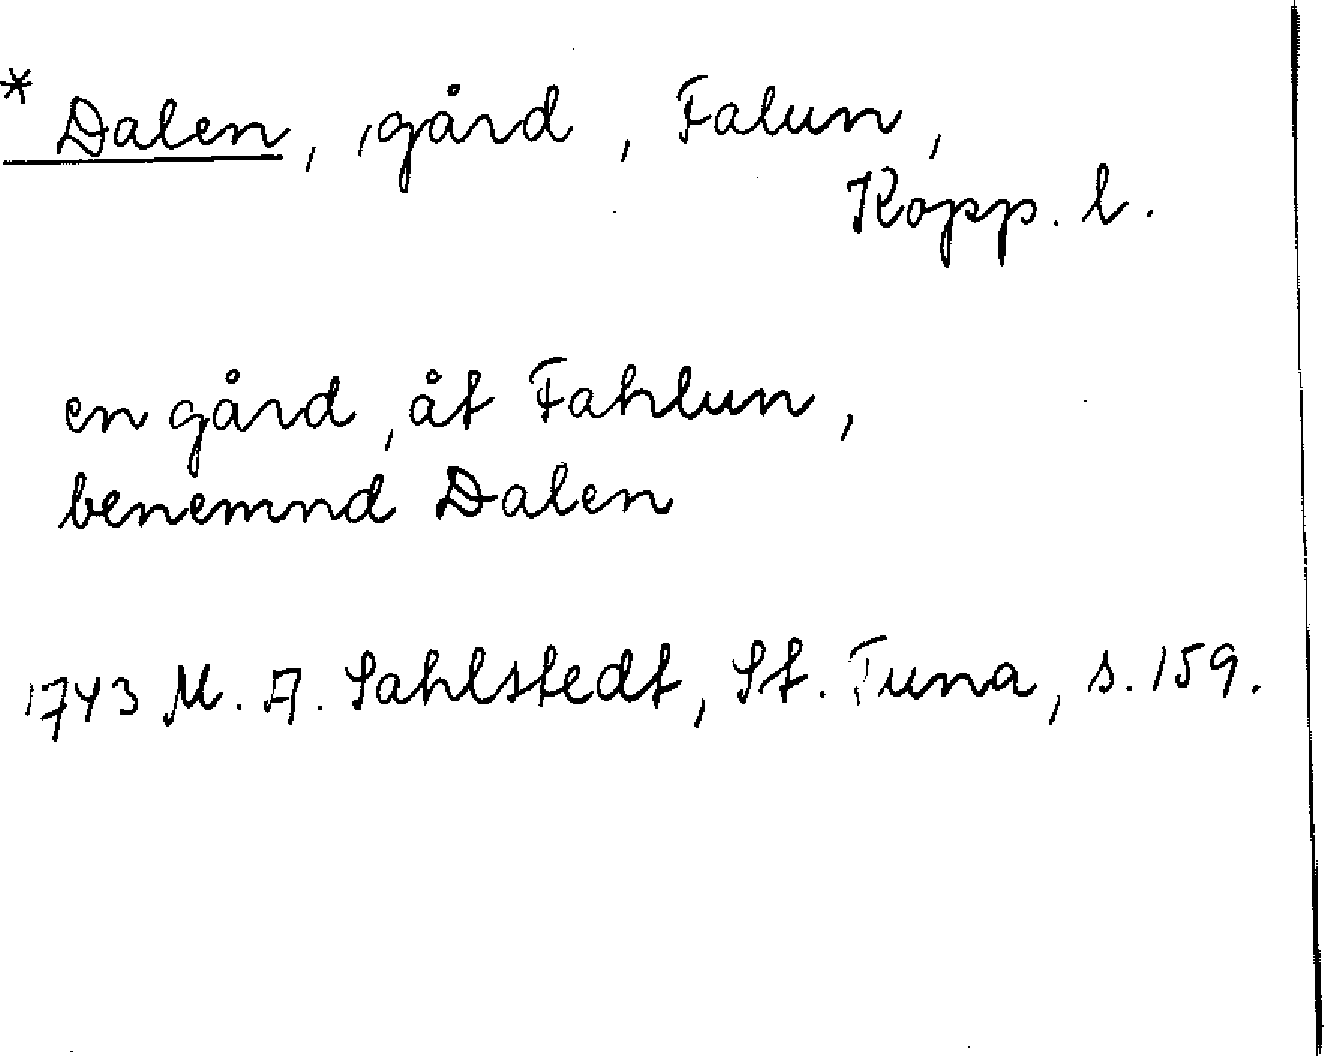 * Dalen, gård, Falun,
Kopp. l.
en gård, åt Fahlun,
benemnd Dalen
1743 M. A. Sahlstedt, St. Tuna, s. 159.